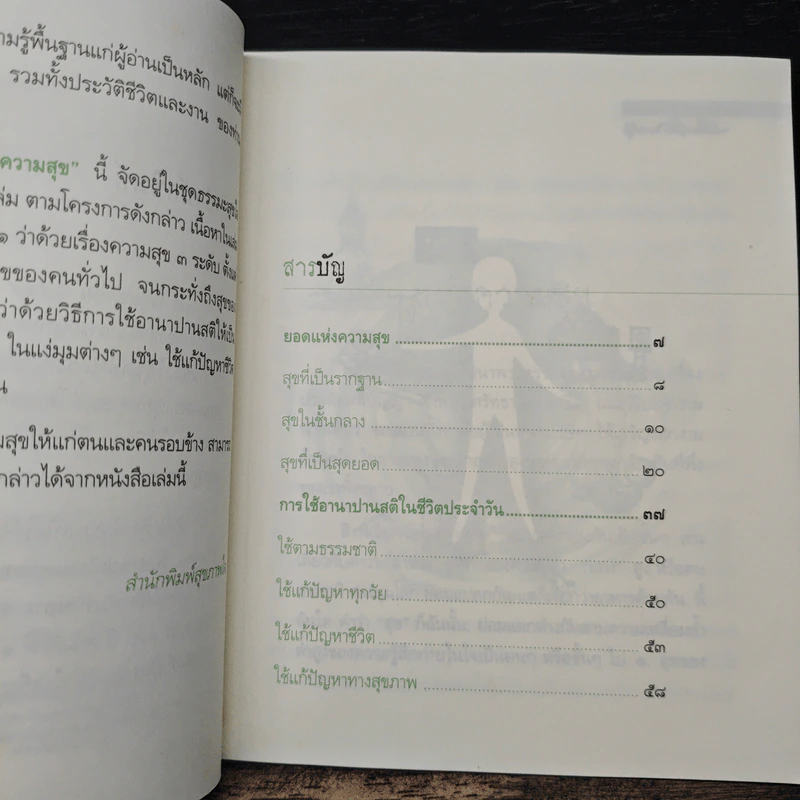 ความรู้พื้นฐานแก่ผู้อ่านเป็นหลัก
รวมทั้งประวัติชีวิตและงาน
ความสุข” นี้ จัดอยู่ในชุดธรรมะสุขใจ
ตามโครงการดังกล่าว เนื้อหาในเล่ม
๑ ว่าด้วยเรื่องความสุข ๓ ระดับ ตั้งแต่
ของคนทั่วไป จนกระทั่งถึงสุข
ว่าด้วยวิธีการใช้อานาปานสติให้เป็น
ในแง่มุมต่างๆ เช่น ใช้แก้ปัญหาชีวิต
สุขให้แก่ตนและคนรอบข้าง
กล่าวได้จากหนังสือเล่มนี้
สำนักพิมพ์สุขภาพใจ
สารบัญ
ยอดแห่งความสุข ๗
สุขที่เป็นรากฐาน ๘
สุขในชั้นกลาง ๑๐
สุขที่เป็นสุดยอด ๒๐
การใช้อานาปานสติในชีวิตประจำวัน ๓๗
ใช้ตามธรรมชาติ ๔๐
ใช้แก้ปัญหาทุกวัย ๕๐
ใช้แก้ปัญหาชีวิต ๕๓
ใช้แก้ปัญหาทางสุขภาพ ๕๘